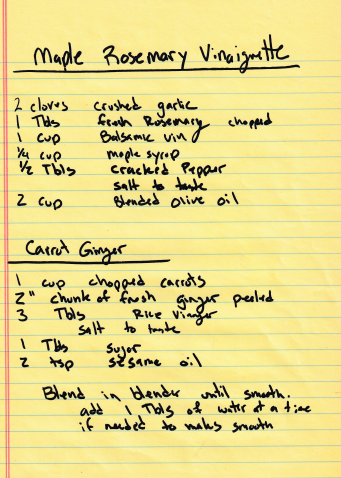 Maple Rosemary Vinaigrette
2 cloves crushed garlic
1 Tbls fresh Rosemary chopped
1 cup Balsamic vin
1/4 cup maple syrup
1/2 Tbls cracked Pepper
salt to taste
2 cup Blended olive oil
Carrot Ginger
1 cup chopped carrots
2" chunk of fresh ginger peeled
3 Tbls Rice Vinager
salt to taste
1 Tbls sugar
2 tsp sesame oil
Blend in blender until smooth.
add 1 Tbls of water at a time
if needed to make smooth